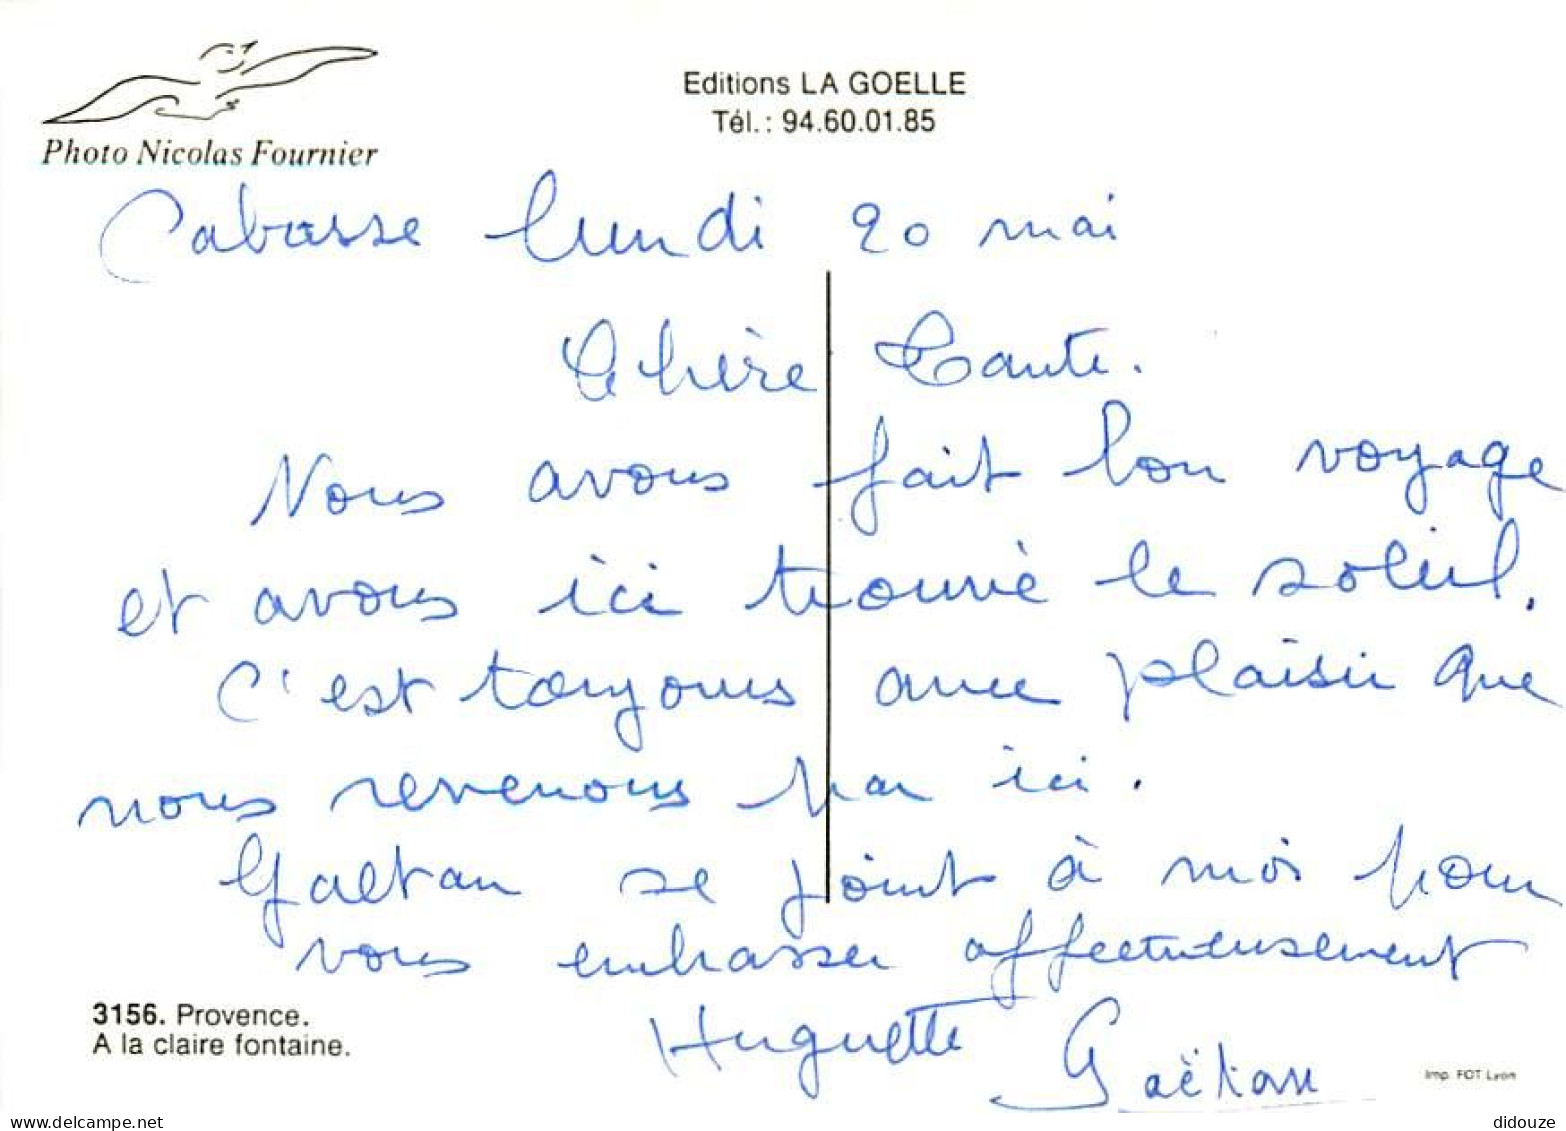 Photo Nicolas Fournier
Editions LA GOELLE
Tél.: 94.60.01.85
Cabasse lundi 20 mai
Chère Tante.
Nous avons fait bon voyage
et avons ici trouvé le soleil.
C'est toujours avec plaisir que
nous revenons par ici.
Gaëtan se joint à moi pour
vous embrasser affectueusement
Huguette Gaëtan
3156. Provence.
A la claire fontaine.
Imp. FOT Lyon
didouze